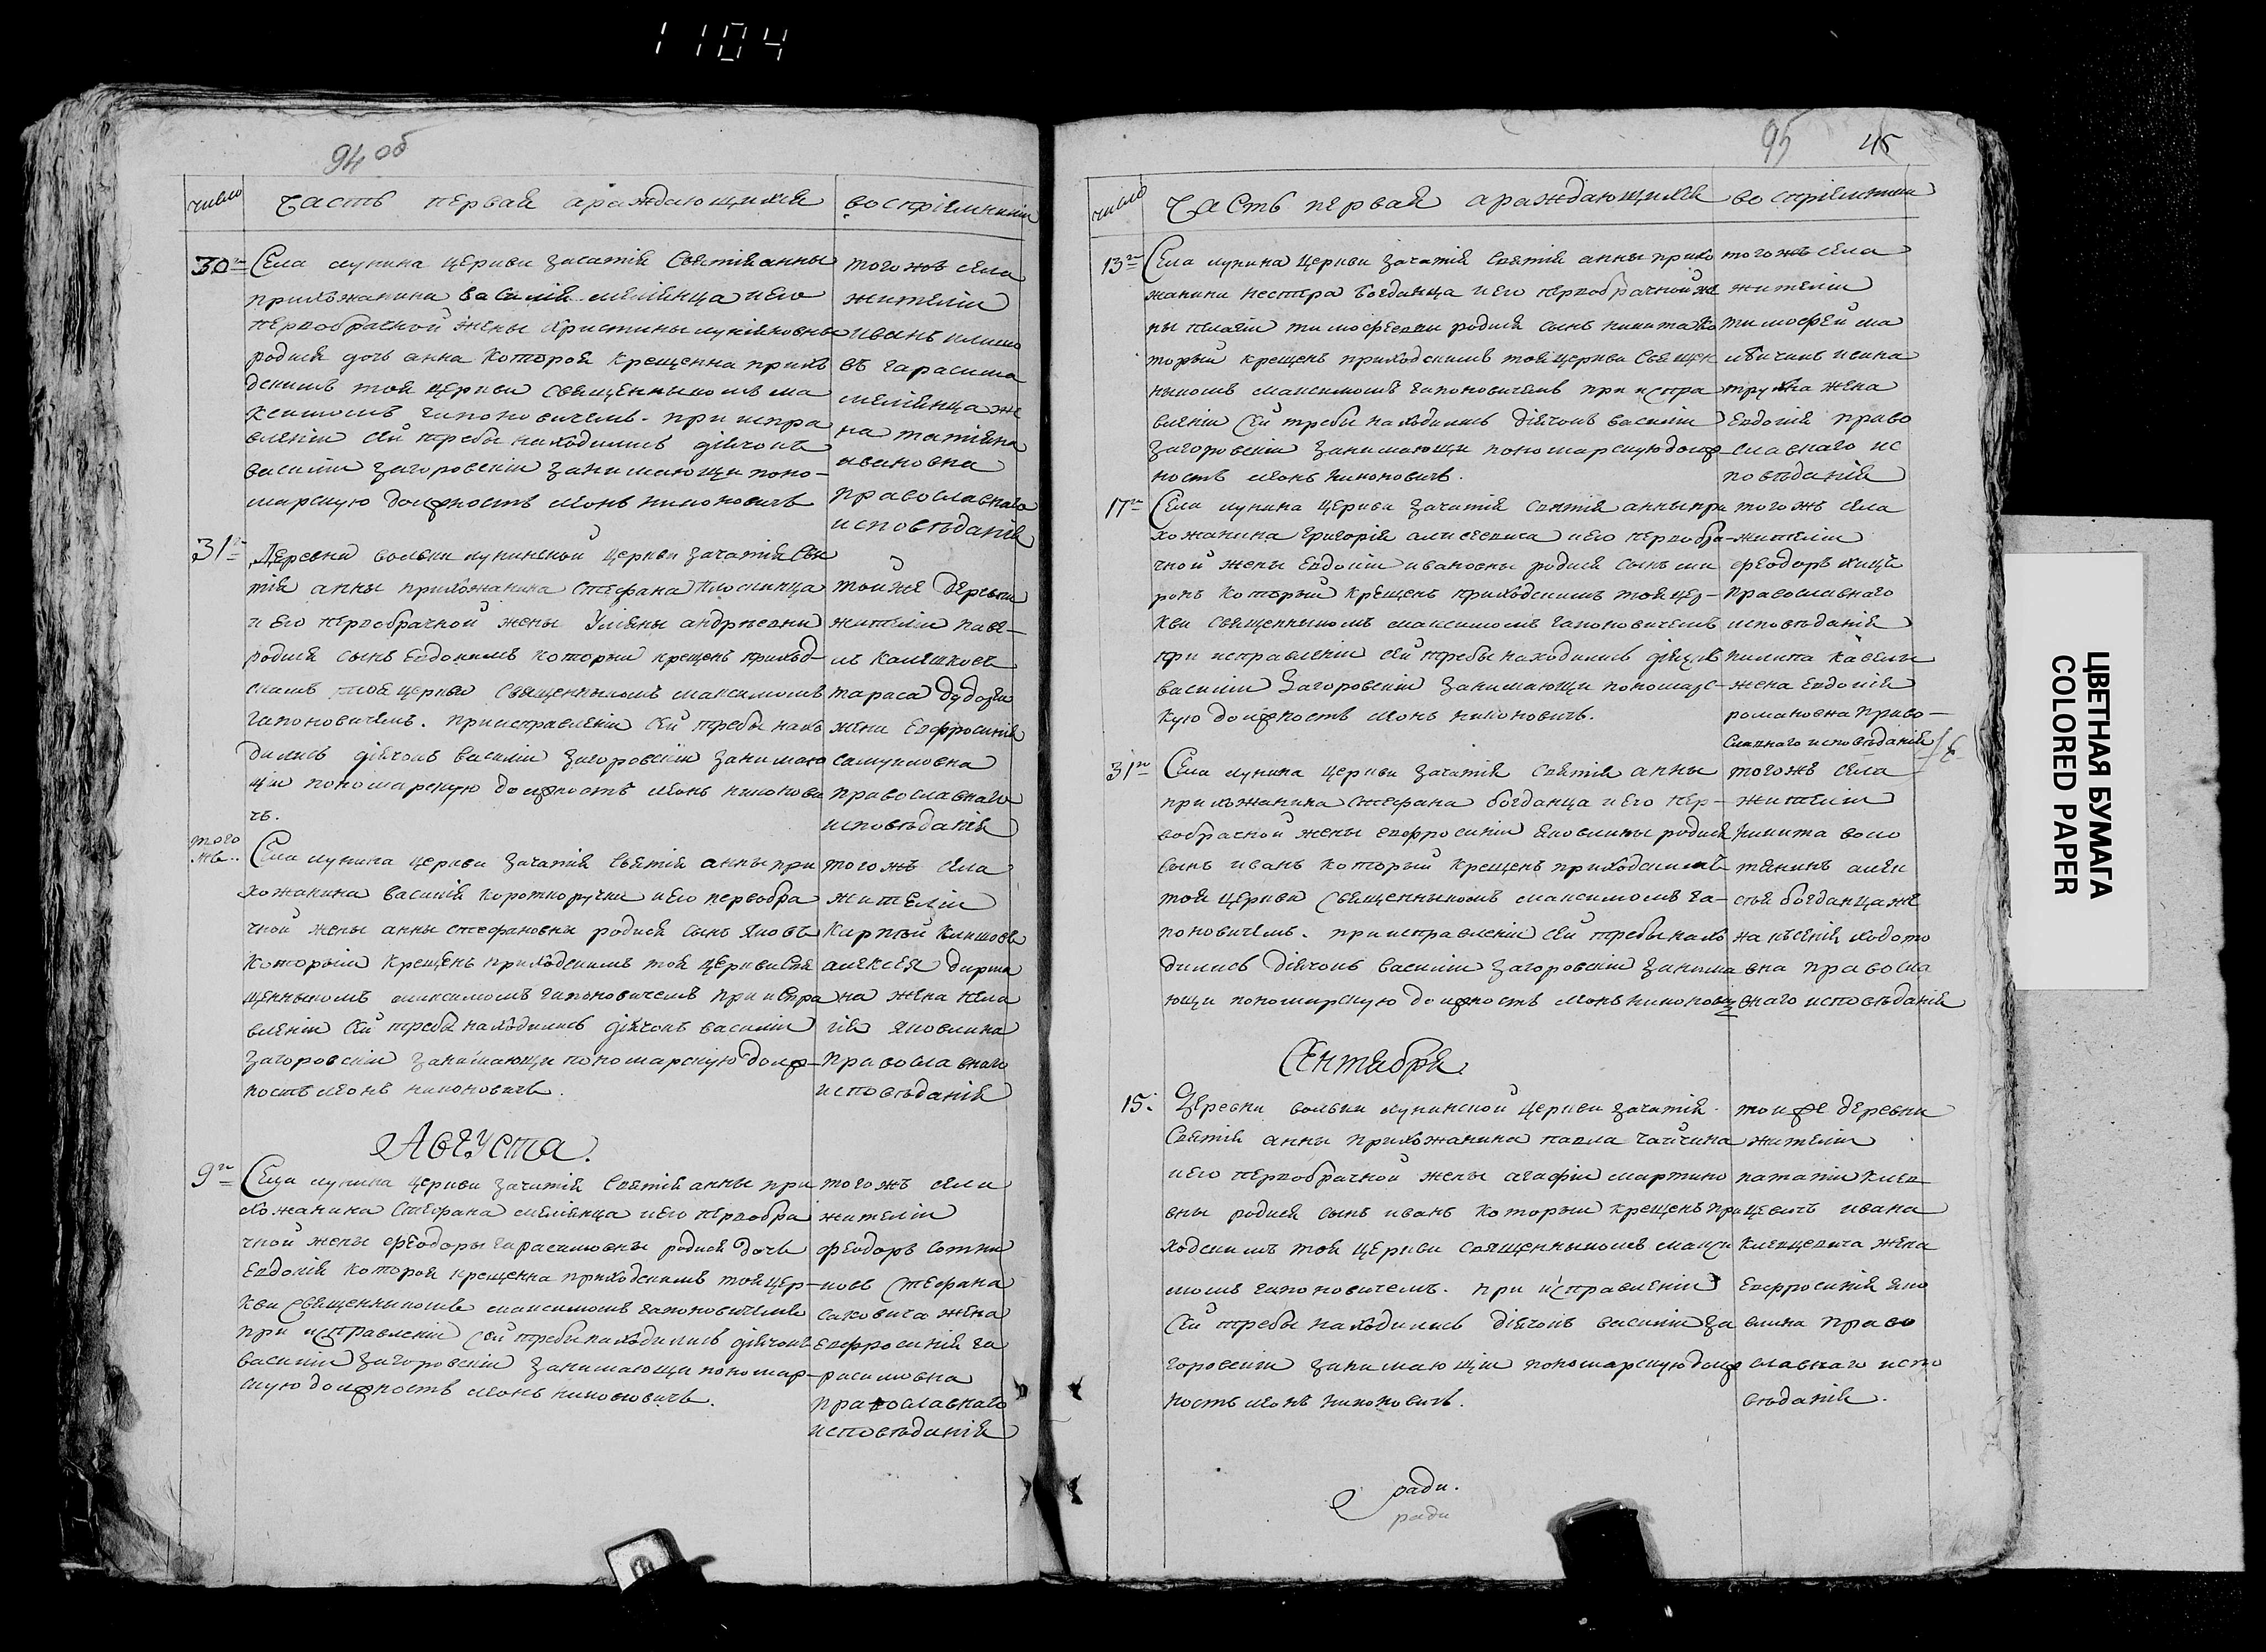 1104
94 об
число
Часть первая араждающихся
восприемники
30го
Села лунина церкви зачатія Святія анны
прихожанина Василія мелянца иего
первобрачной жены Христины
родися дочь анна Которой крещенна прихо
дскимъ той церкви священникомъ ма
ксимомъ гапоновичемъ. при испра
вленіи сей требы находились діячокъ
василіи загоровскіи занимающи поно-
марскую должность леонъ никоновичъ
тогожъ села
жители
иванъ климо
въ гарасима
мелянца же
на татіяна
ивановна
православнаго
исповѣданія
31го
Деревни вольки лунинской церкви зачатія Свя
тія анны прихожанина Стефана Плоскинца
и его первобрачной жены Уліяны андреевни
родися сынъ Евдокимъ которыи крещенъ приход-
скимъ той церкви священникомъ максимомъ
гапоновичемъ. приисправленіи сей требы нахо
дились діячокъ василіи загоровскіи занимаю
щіи пономарскую должность леонъ никонови
чъ.
тойже деревни
жители паве-
лъ Калешковъ
тараса дудорги
жена Евфросинія
самуиловна
православнаго
исповѣданія
того
жъ..
Села лунина церкви зачатія святія анны при
хожанина василія короткоручки иего первобра
чной жены анны стефановны родися сынъ яковъ
которыи крещенъ приходскимъ той церкви Свя
щенникомъ максимомъ гапоновичемъ при испра
вленіи сей требы находились діячокъ василіи
загоровскіи занимающи пономарскую долж-
ность леонъ никоновичъ.
тогожъ села
жители
Карпъ Климовъ
алексея
на жена пела
гія яковлина
православнаго
исповѣданія
Августа.
9го
Села лунина церкви зачатія святія анны при
хожанина Стефана мелянца иего первобра
чной жены феодоры гарасимовны родися дочь
Евдокія которой крещенна приходскимъ той цер-
кви священникомъ максимомъ гапоновичемъ
при исправленіи сей требы находились діячокъ
василіи загоровскіи занимающи пономар-
скую должность леонъ никоновичъ.
тогожъ села
жители
феодоръ сотни
ковъ Стефана
саковича жена
Евфросинія га
расимовна
православнаго
исповѣданія
95 45
число
Часть первая араждающихся
восприемники
13го
Села лунина церкви зачатія святія анны прихо
жанина нестера богданца иего первобрачной же
ны пелагіи тимофеевни родися сынъ никита ко
торыи крещенъ приходскимъ той церкви священ
никомъ максимомъ гапоновичемъ при испра
вленіи сей требы находились діячокъ василіи
загоровскіи занимающи пономарскую долж-
ность леонъ никоновичъ.
тогожъ села
жители
тимофей ма
ивана
жена
Евдокія право
славнаго ис
повѣданія
17го
Села лунина церкви зачатія святія анны при
хожанина григорія алисеевича иего первобра-
чной жены Евдокіи ивановны родися сынъ ми
ронъ который крещенъ приходскимъ той цер-
кви священникомъ максимомъ гапоновичемъ
при исправленіи сей требы находились діячокъ
василіи загоровскіи занимающи пономарс-
кую должность леонъ никоновичъ.
тогожъ села
жители
феодоръ
православнаго
исповѣданія
жена Евдокія
романовна право-
славнаго исповѣданія
31го
Села лунина церкви зачатія святія анны
прихожанина стефана богданца иего пер-
вобрачной жены евфросиніи яковлины родися
сынъ иванъ который крещенъ приходскимъ
той церкви священникомъ максимомъ га-
поновичемъ. приисправленіи сей требы нахо
дились діячокъ василіи загоровскіи занима
ющи пономарскую должность леонъ никонович
тогожъ села
жители
никита воло
алек
сѣя богданца же
на ксенія
вна правосла
внаго исповѣданія
Сентября
15.
Деревни вольки лунинской церкви зачатія
Святія анны прихожанина павла чайчица
иего первобрачной жены агафіи мартино
вны родися сынъ иванъ который крещенъ при
ходскимъ той церкви священникомъ макси
момъ гапоновичемъ. при исправленіи
сей требы находились діячокъ василіи за
горовскіи занимающіи пономарскую долж
ность леонъ никоновичъ.
тойже деревни
жители
игнатіи Киев
цевичъ ивана
Киевцевича жена
Евфросинія яко
влина право
славнаго испо
вѣданія.
ради.
ради
ЦВЕТНАЯ БУМАГА
COLORED PAPER